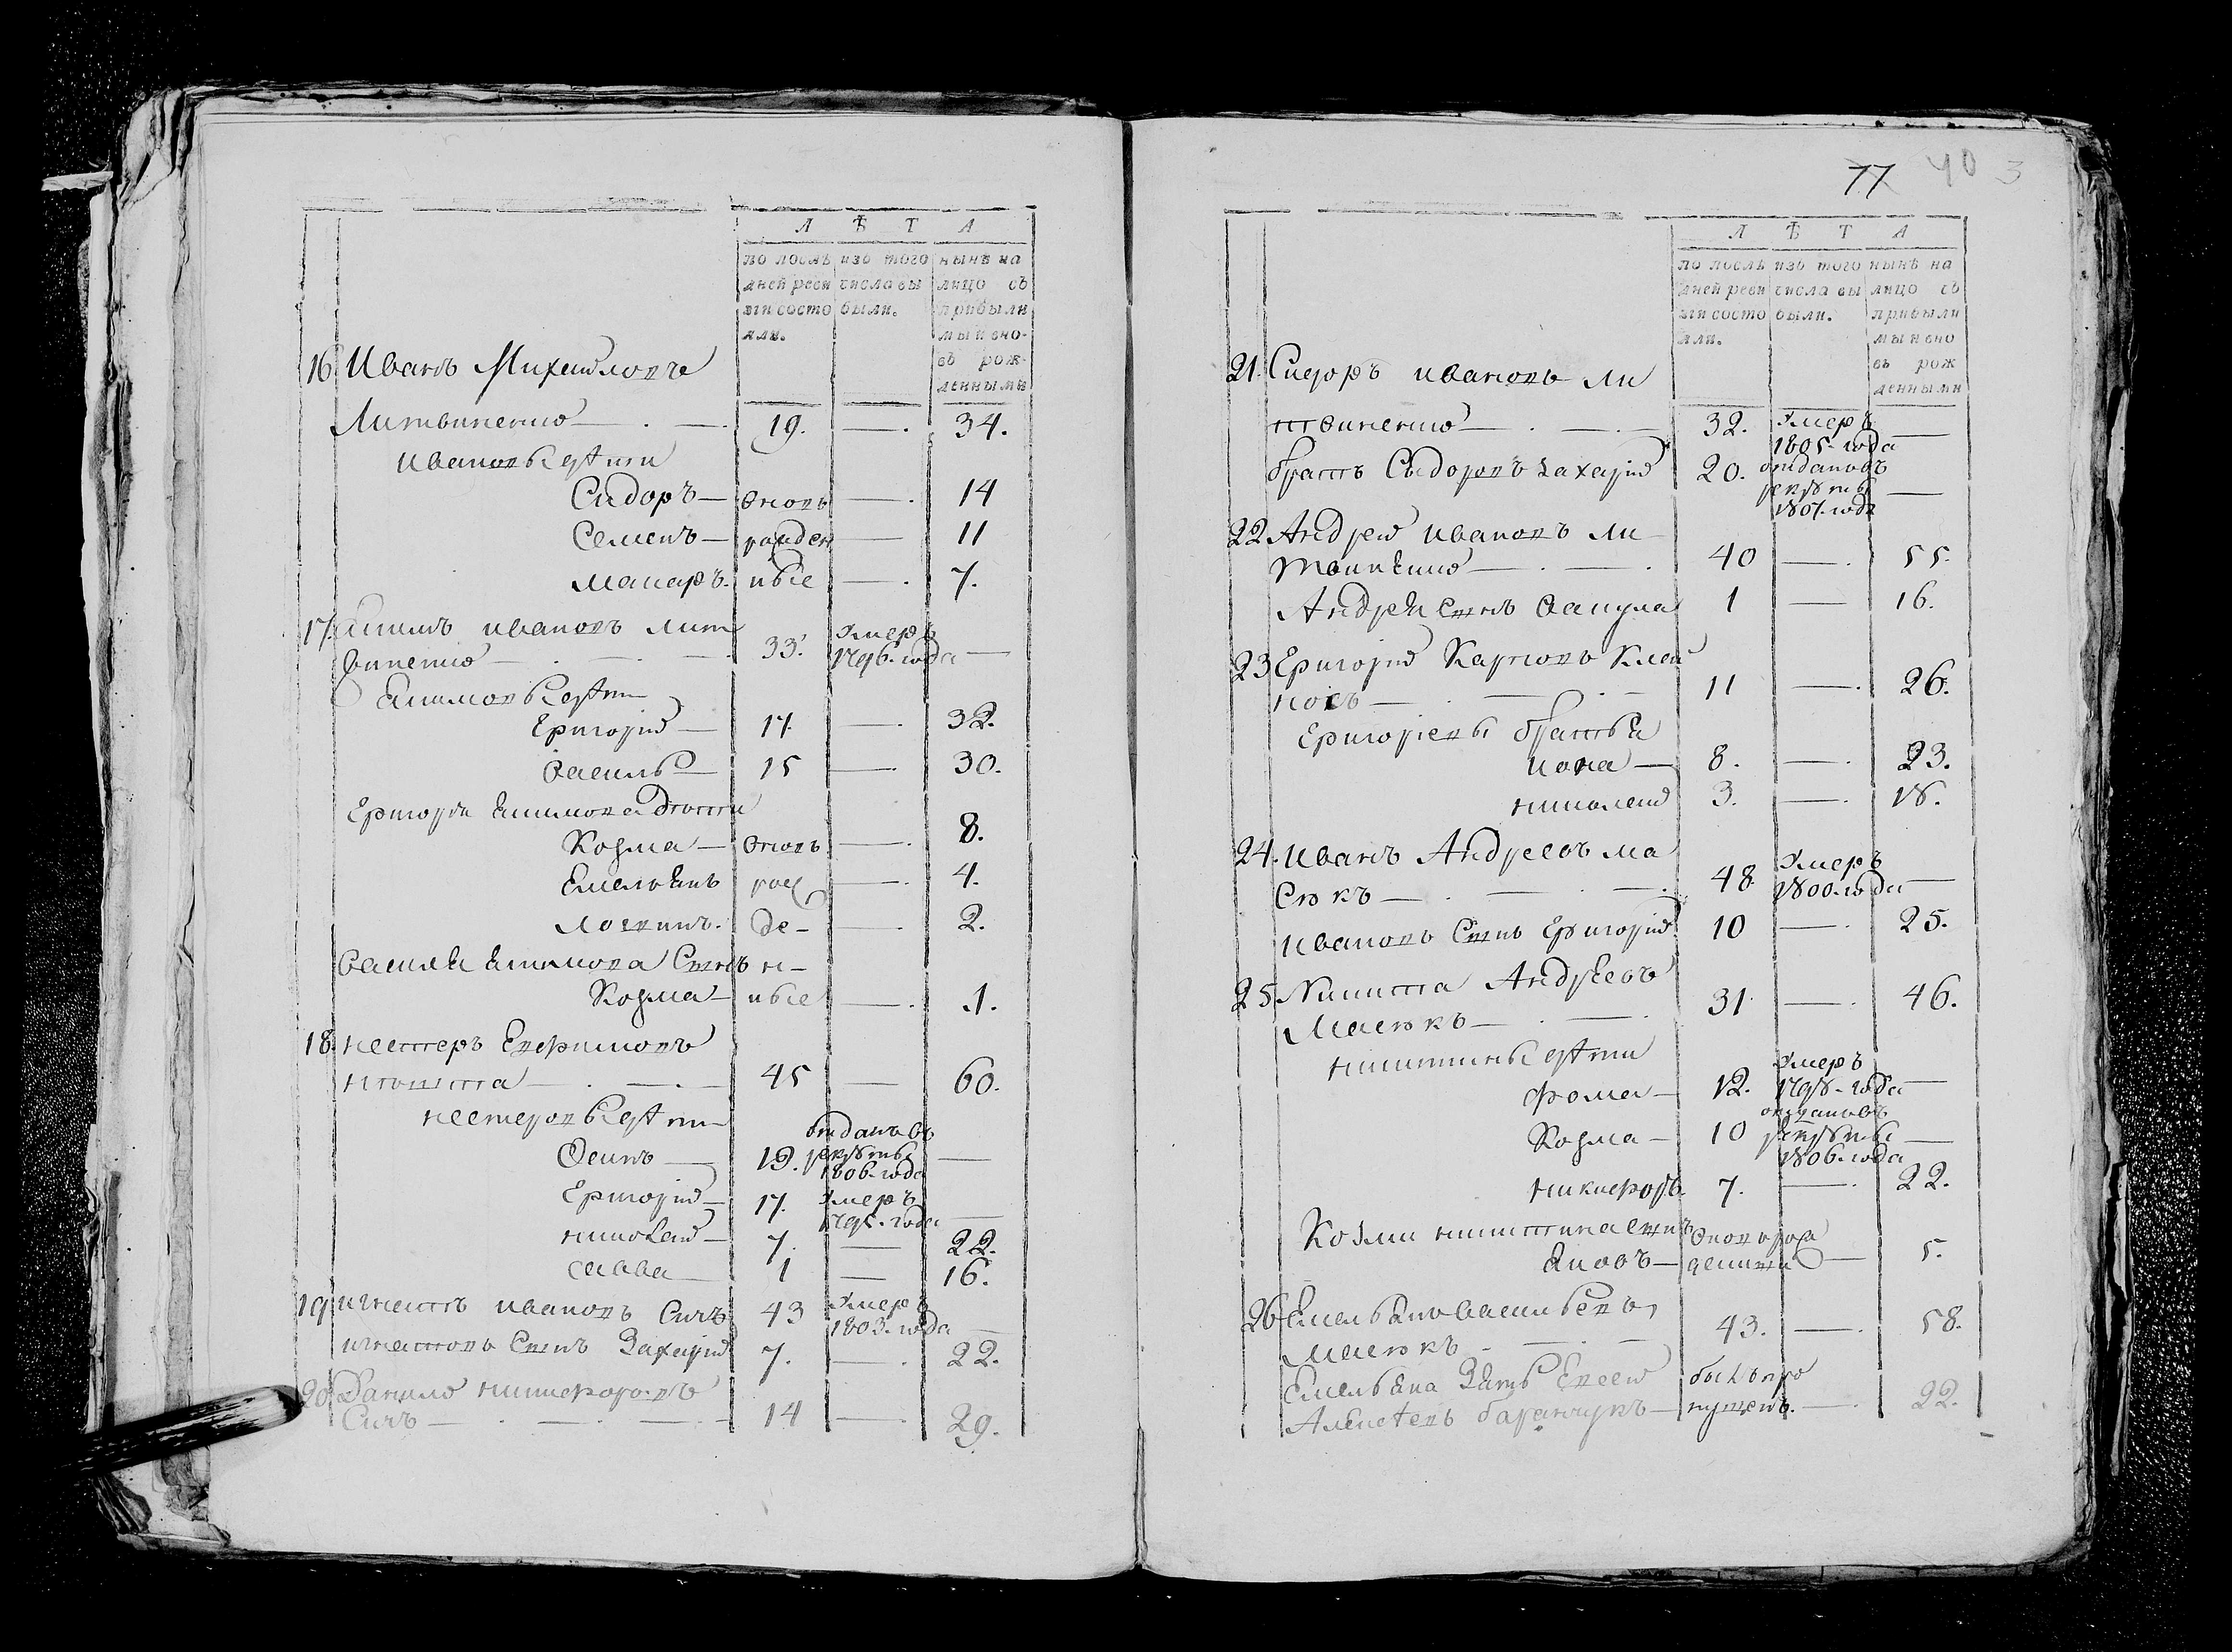 Л Ѣ Т А
по послѣ изо того нынѣ на
дней реви числа вы лицо съ
зіи состо были. прибыли
яли. мы и вно-
въ рож-
денными
16 Иванъ Михайловъ
Литвиненко — . — 19. — . 34.
Ивановы дѣти
Сидоръ — вновь — . 14
Семенъ — рожден — 11
Макаръ. ные — . 7.
17 Якимъ Ивановъ Лит
виненко — . — . — 33. Умеръ 1796. года —
Якимовы дѣти
Григорій — 17. — . 32.
Василь — 15 — . 30.
Григорія Якимова дѣти
Козма — вновь — . 8.
Емельянъ рож — . 4.
Логвинъ. де- — . 2.
Василя Якимова сынъ н-
Козма — ные — . 1.
18. Нестеръ Евфимовъ
— . — . — 45 — 60.
Нестеровы дѣти
отданъ въ
19. рекруты —
1806. года
Григорій — 17. Умеръ
179 . года —
Николай — 7. — 22.
Савва — 1 — 16.
19 Игнатъ Ивановъ Сичъ 43 Умеръ
1803. года —
Игнатовъ сынъ Захарій 7. — . 22.
20 Данило Никифоровъ
Сичъ — . — . — . — 14 — . 29.
77 40 3
Л Ѣ Т А
по послѣ изъ того нынѣ на
дней реви числа вы лицо съ
зіи состо были. прибыли
яли. мы и вно
въ рож
денными
21. Сидоръ Ивановъ Ли
твиненко — . — . — 32. Умеръ —
1805. года
братъ Сидоровъ Захарій 20. отданъ въ
рекруты —
1807. года
22. Андрей Ивановъ Ли
твиненко — . — . 40 — . 55.
Андрея сынъ Вакула 1 — 16.
23 Григорій Карповъ Клей
носъ — . — . — 11 — . 26.
Григоріевы братья
Иова — 8. — . 23.
Николай 3. — . 18.
24. Иванъ Андреевъ Ма
сюкъ — . — . — . 48. Умеръ
1800. года —
Ивановъ сынъ Григорій 10 — . 25.
25. Никита Андреевъ
Масюкъ — . — . 31. — . 46.
Никитины дѣти
Фома — 12. Умеръ
1798. года —
Козма — 10 отданъ въ
рекруты —
1806. года
Никифоръ. 7. — . 22.
Козми Никитина сынъ вновь рож
Яковъ — денный — 5.
26 Емельянъ Васильевъ
Масюкъ — . — . — 43. — . 58.
Емельяна зять Евсей былъ про
Алексѣевъ — пущенъ. — . 22.